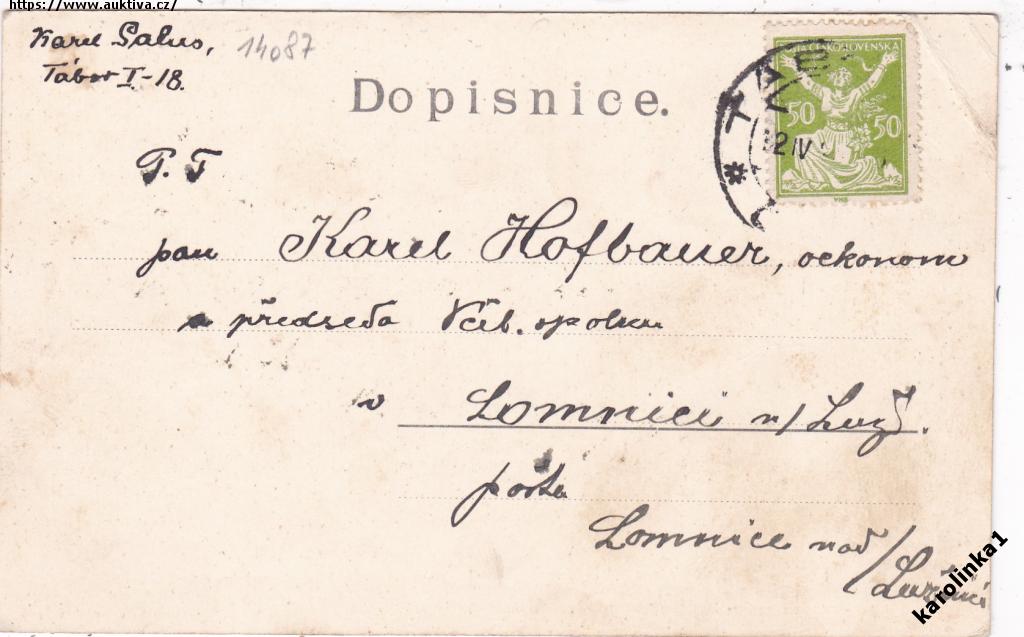 https://www.auktiva.cz/
Karel Salus,
Tábor I-18.
14087
Dopisnice.
POŠTA ČESKOSLOVENSKA
50 50
TÁB
12 IV
P. T
pan Karel Hofbauer, oekonom
a předseda Včel. spolku
v Lomnici n/Luž.
pošta
Lomnice nad
/Lužnicí
karolinka1